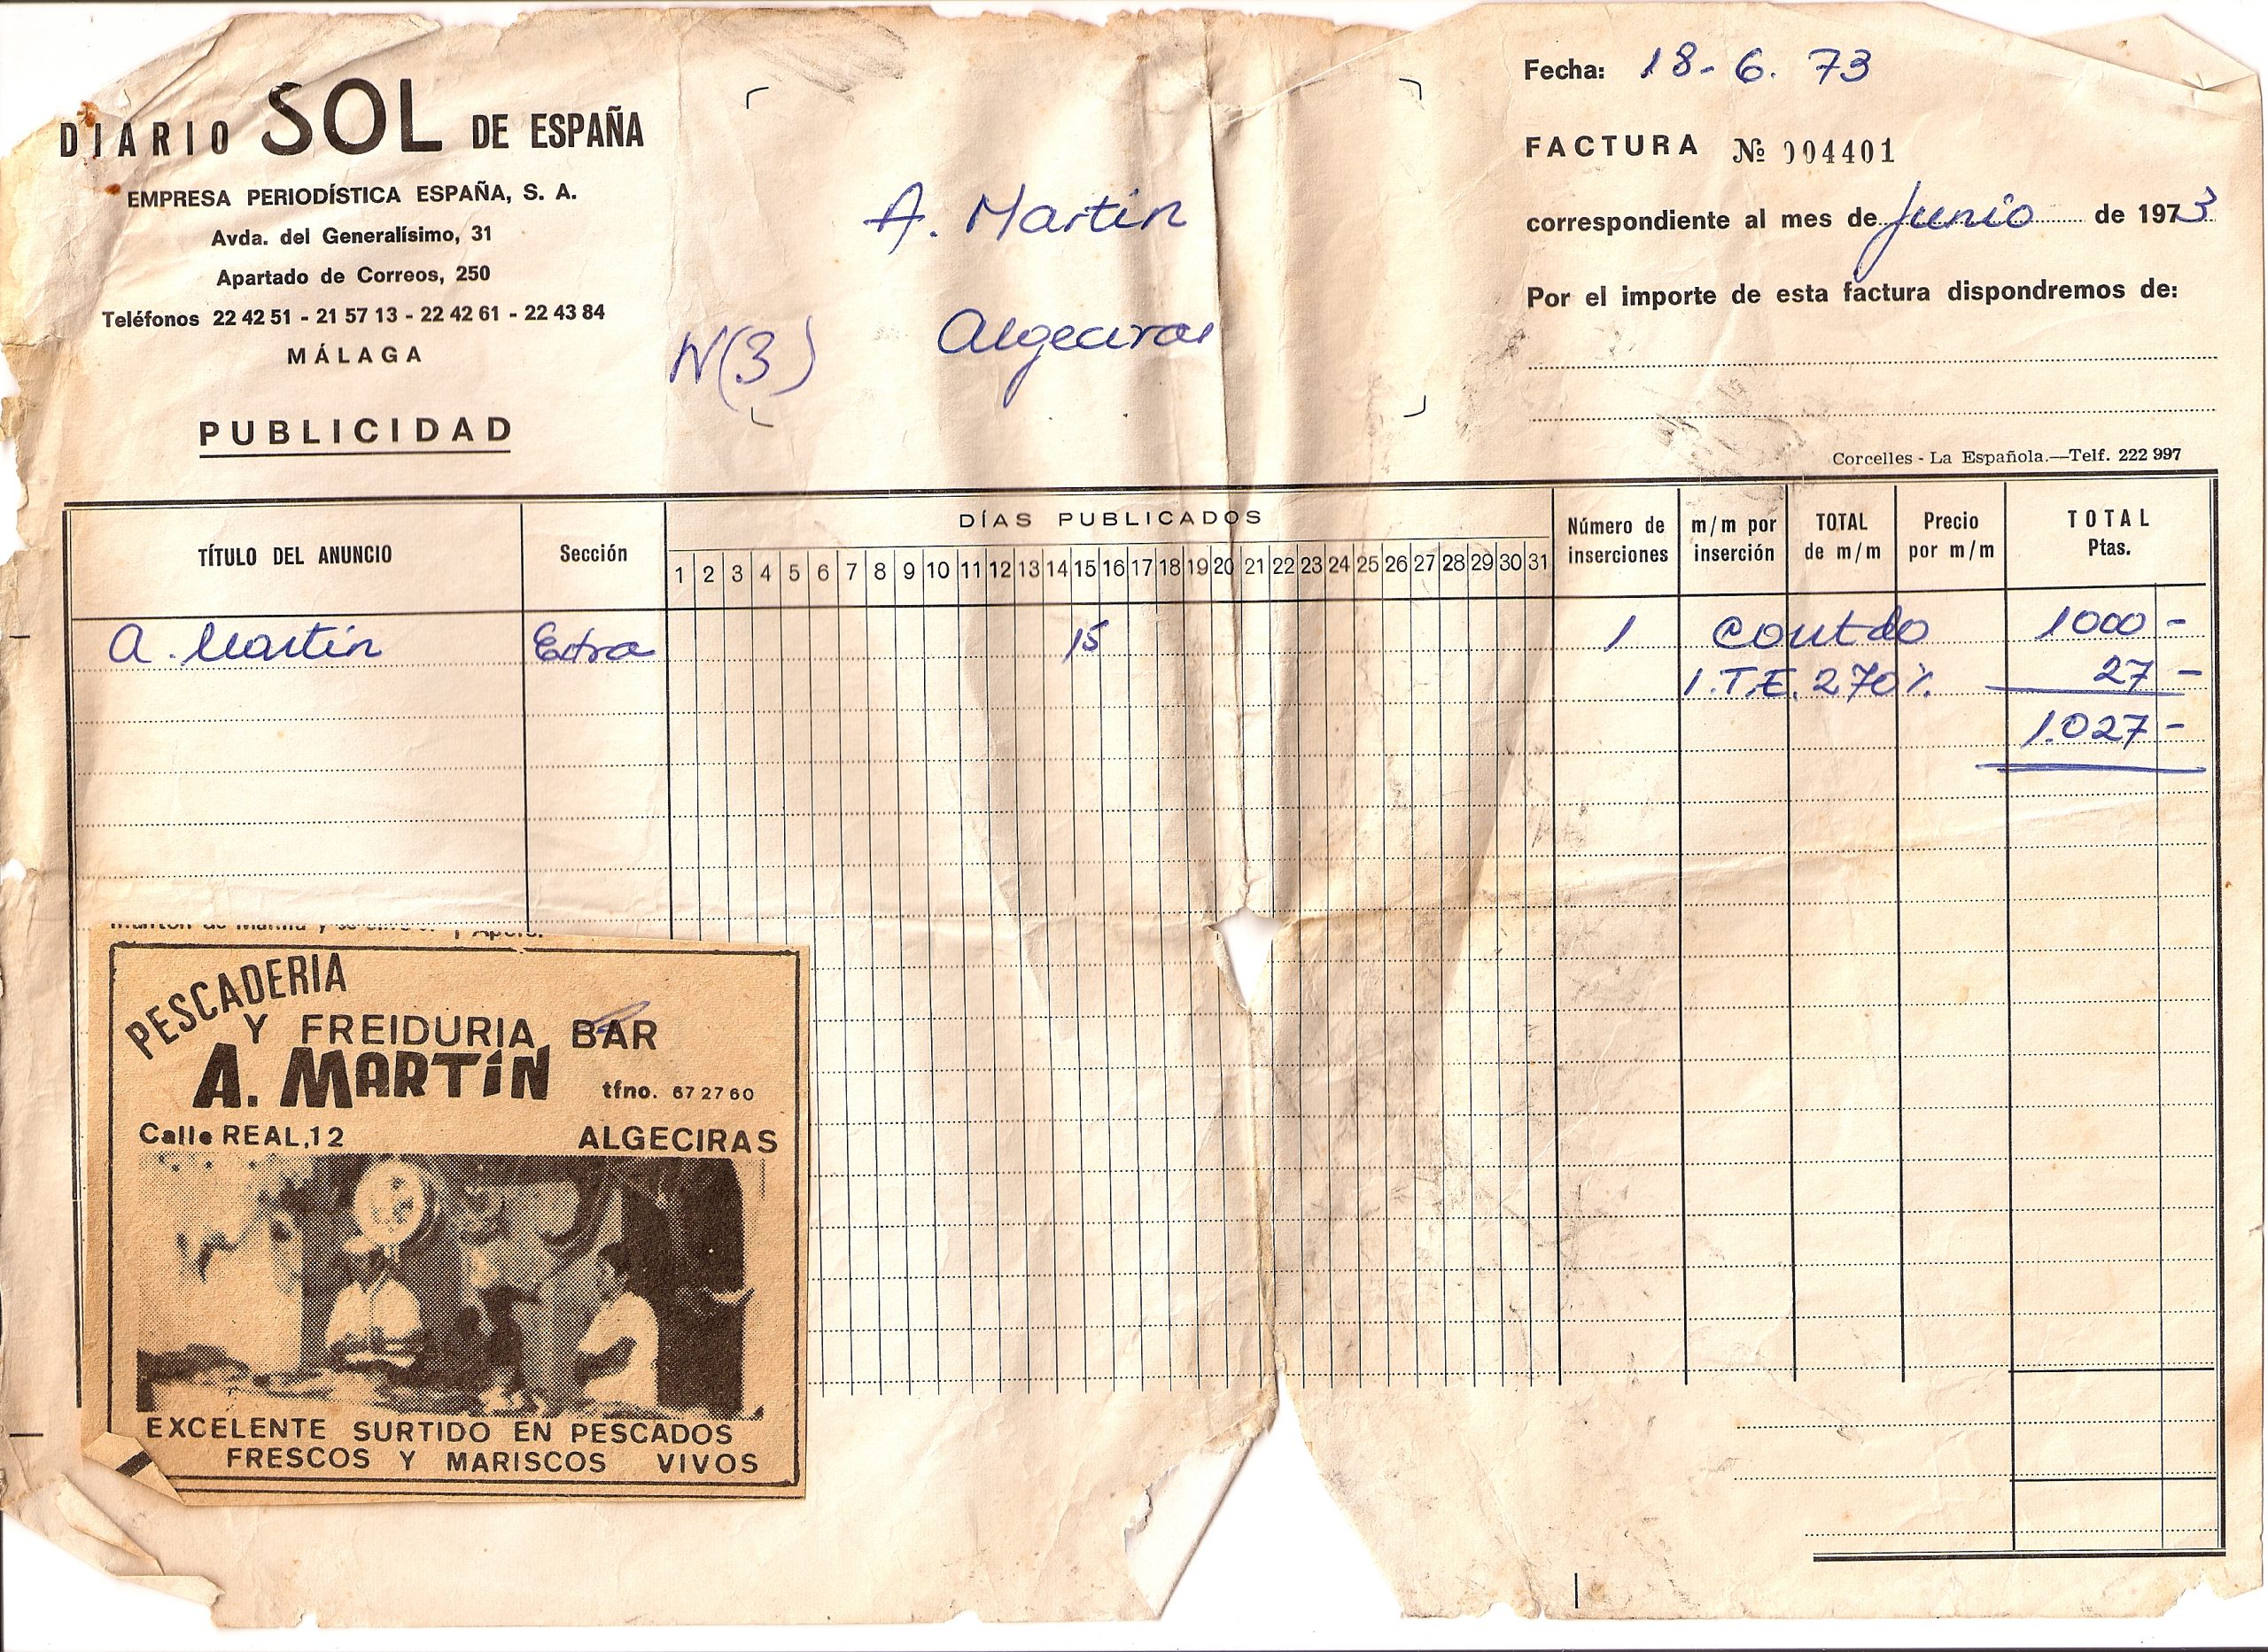 DIARIO SOL DE ESPAÑA
EMPRESA PERIODÍSTICA ESPAÑA, S. A.
Avda. del Generalísimo, 31
Apartado de Correos, 250
Teléfonos 22 42 51 - 21 57 13 - 22 42 61 - 22 43 84
MÁLAGA
PUBLICIDAD
A. Martin
Algeciras
N(3)
Fecha: 18-6. 73
FACTURA Nº 004401
correspondiente al mes de Junio de 1973
Por el importe de esta factura dispondremos de:
Corcelles - La Española.—Telf. 222 997
TÍTULO DEL ANUNCIO
Sección
DÍAS PUBLICADOS
1 2 3 4 5 6 7 8 9 10 11 12 13 14 15 16 17 18 19 20 21 22 23 24 25 26 27 28 29 30 31
Número de inserciones
m/m por inserción
TOTAL de m/m
Precio por m/m
TOTAL Ptas.
A. Martin Extra 15 1 contdo 1000 -
I.T.E. 270% 27 -
1.027 -
PESCADERIA
Y FREIDURIA BAR
A. MARTÍN tfno. 67 27 60
Calle REAL,12 ALGECIRAS
EXCELENTE SURTIDO EN PESCADOS
FRESCOS Y MARISCOS VIVOS